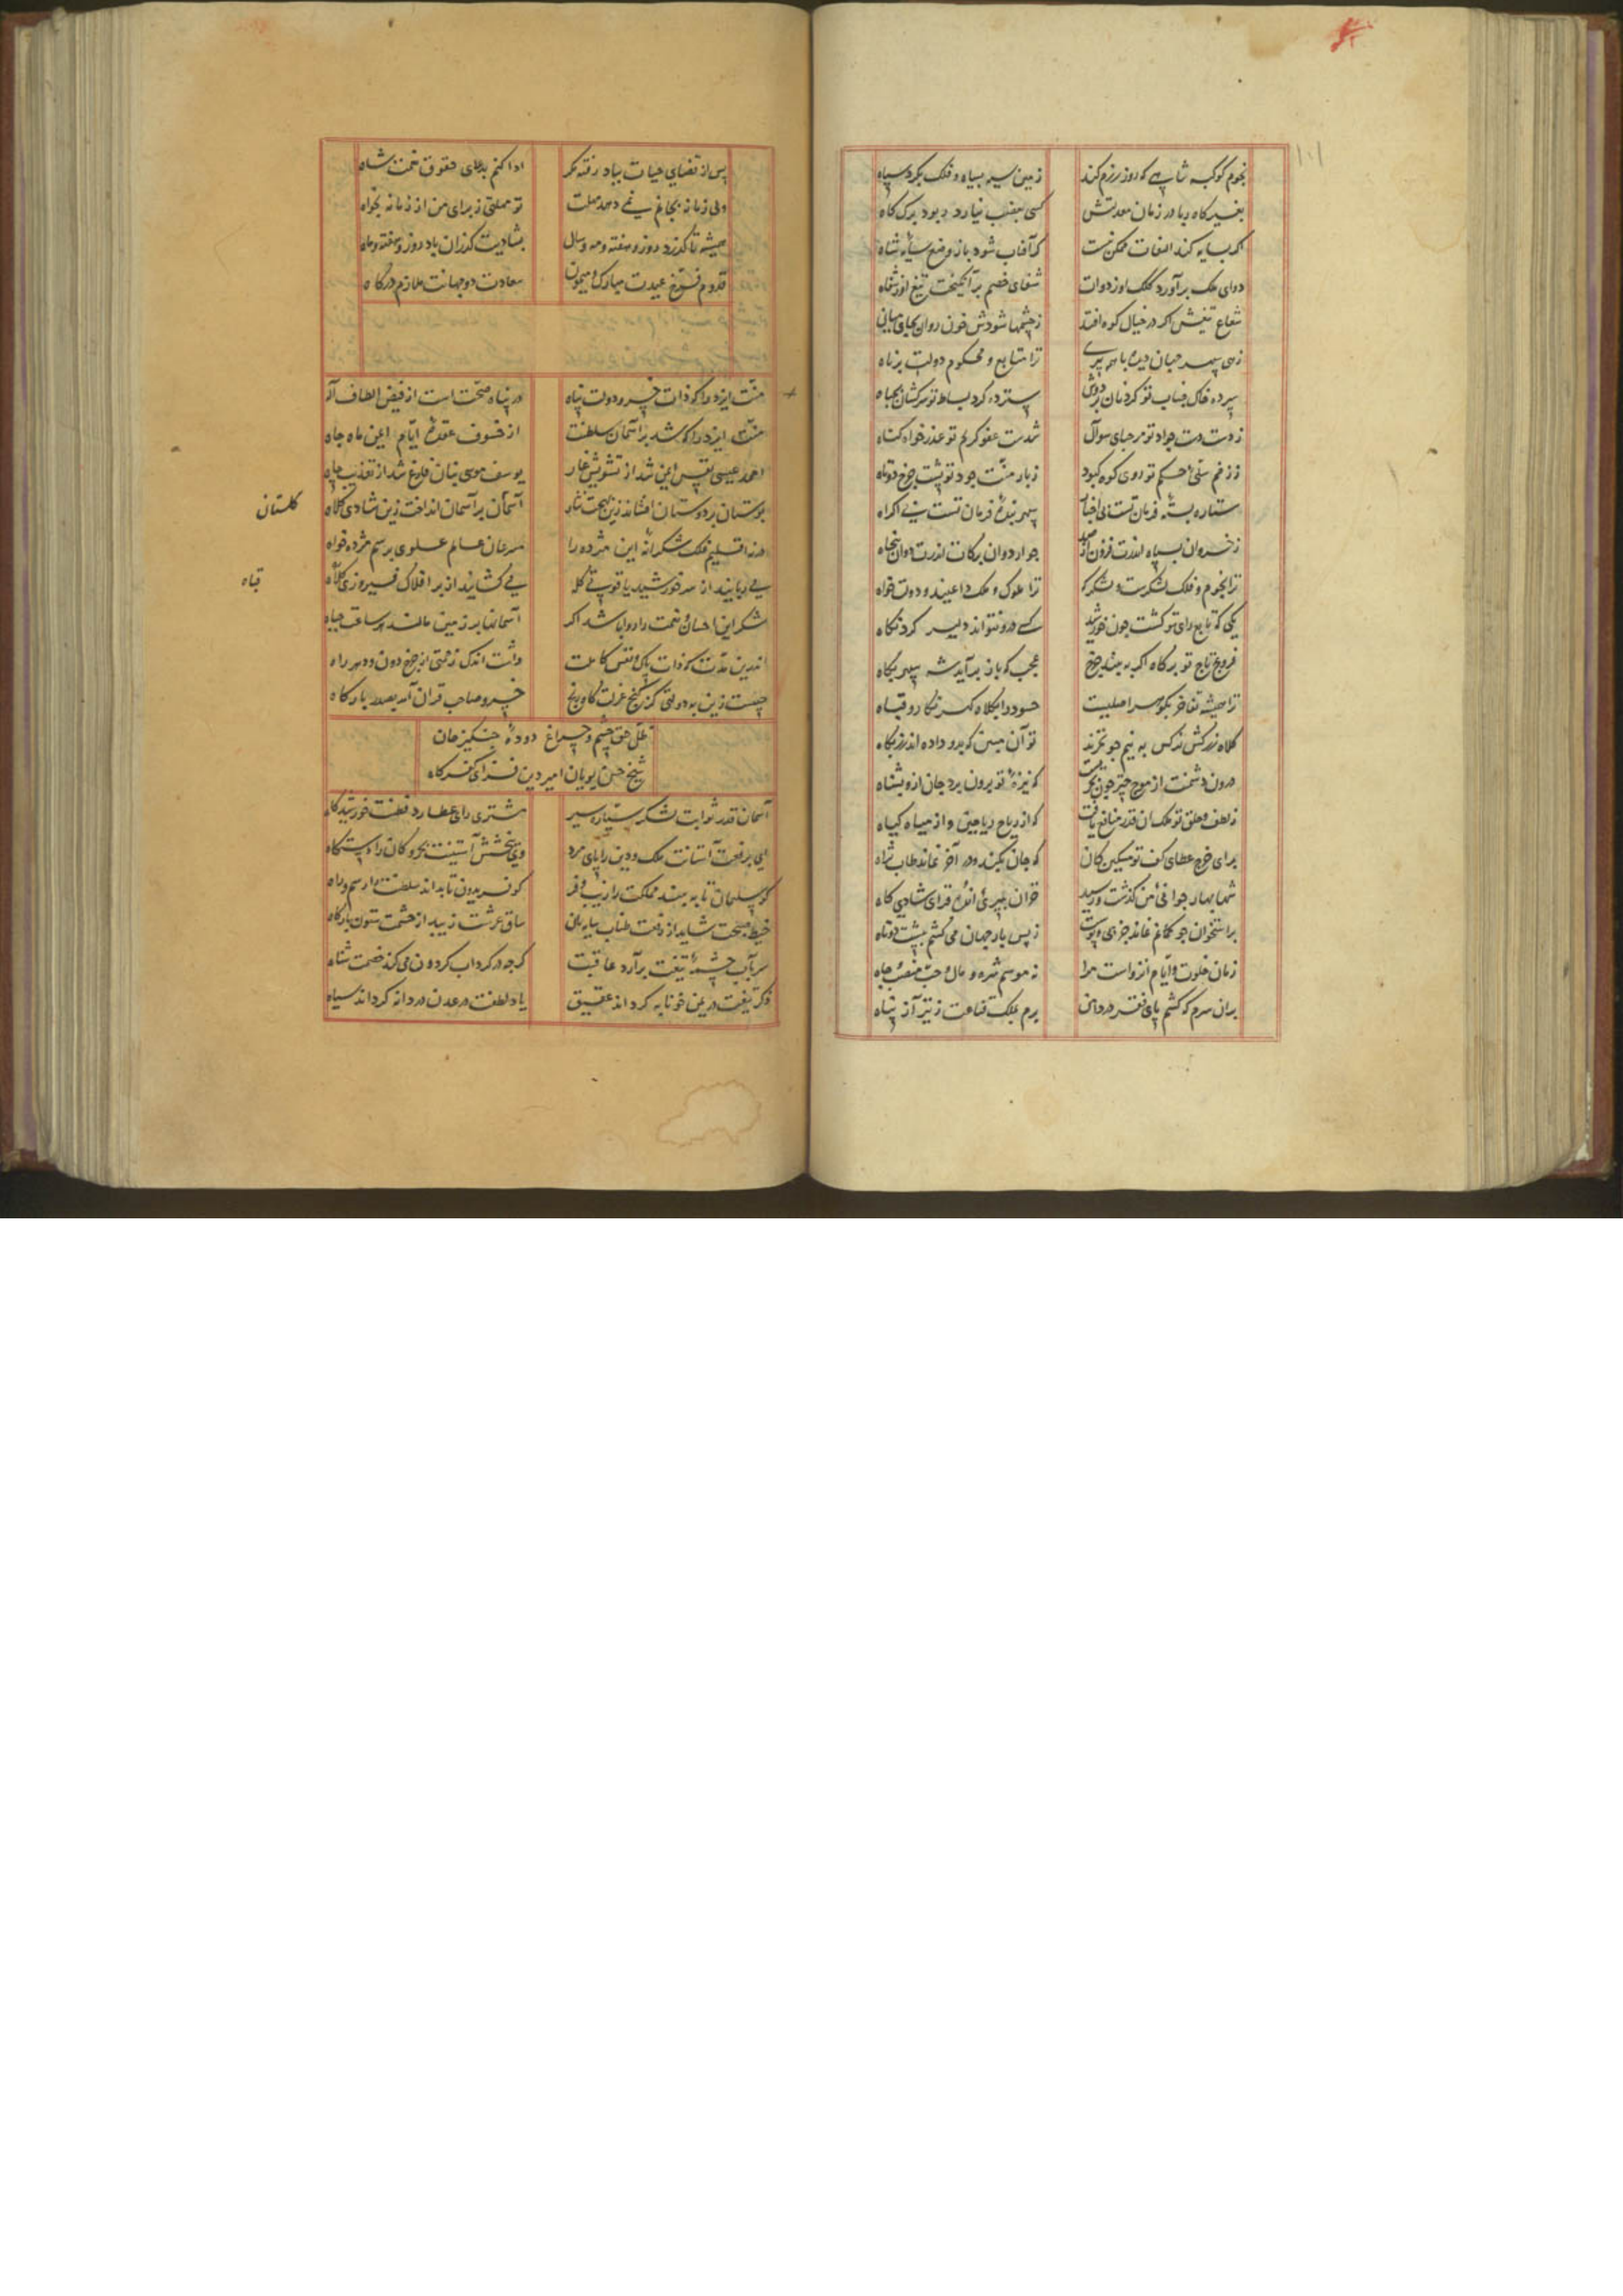 نجوم کوکبه شاهی که روز رزم کند زمین سیه بسپاه و فلک بگرد سپاه
بغیر کاه ربا در زمان معدلتش کسی بغصب نیارد ربود برگ کاه
اگر بسایه کند التفات ممکن نیست که آفتاب شود باز وضع سایه شاه
دوای ملک برآورد کلک او ز دوات شفای خصم برانگیخت تیغ او ز شفاه
شعاع تیغش اگر در خیال کوه افتد ز چشمها شودش خون روان بجای میاه
زهی سپهر جهان دیده با همه پیری ترا متابع و محکوم دولت برناه
سپرده خاک جناب تو گردنان بر دوش سترده گرد بساط تو سرکشان بجباه
ز دست جواد تو مرحبای سوال شدست عفو کریم تو عذرخواه گناه
ز زخم سیلی حکم تو روی کوه کبود ز بار منت جود تو پشت چرخ دوتاه
ستاره بسته فرمان تست بی اجبار سپهر بنده فرمان تست بی اکراه
ز خسروان بسپاه اندرت فزون از صد
ترا نجوم و فلک لشکرست و لشکرگه ترا ملوک و ملک داعیند و دولت خواه
یکی که تابع رای تو گشت چون خورشید کسی درو نتواند دلیر کرد نگاه
فروغ تاج تو بر گاه اگر به بیند چرخ عجب که باز برآید شه سپهر بگاه
ترا همیشه تفاخر بگوهر اصلیست حسود را بکلاه کهر نگار و قباه
کلاه زرکش نرگس به نیم جو نخرند تو آن مبین که بدو داده اند زر بکلاه
درون دشمنت از موج
ز لطف و خلق تو ملک آن قدر منافع یافت که از ریاح ریاحین و از میاه گیاه
برای خرج عطای کف تو مسکین کان که جان بکند و در آخر نماند طاب ثراه
شها بهار جوانی من گذشت و رسید خزان پیری انده فزای شادی کاه
بر استخوان چو کمانم نماند جز پی و پوست ز بس که بار جهان می کشم بپشت دوتاه
زمان خلوت و ایام انزواست مرا نه موسم شره و مال و حب منصب و جاه
بر آن سرم که کشم پای فقر در دامن برم بملک قناعت ز نیز آز پناه
پس از قضای حیات بباد رفته مگر ادا کنم بدعای حقوق نعمت شاه
ولی زمانه بجانم نمی دهد مهلت تو مهلتی ز برای من از زمانه بخواه
همیشه تا گذرد روز و هفته و مه و سال بشادیت گذران باد روز و هفته و ماه
قدوم فرخ عیدت مبارک و میمون سعادت دو جهانت ملازم درگاه
منت ایزد را که ذات خسرو دولت پناه در پناه صحت است از فیض الطاف اله
منت ایزد را که شد بر آسمان سلطنت از خسوف عقده ایام ایمن ماه جاه
احمد عیسی نفس ایمن شد از تشویش غار یوسف موسی بنان فارغ شد از تعذیب چاه
بوستان بر دوستان افشاند زین بهجت نثار آسمان بر آسمان انداخت زین شادی کلاه
گلستان
در نه اقلیم فلک شکرانه این مژده را سرعان عالم علوی برسم مژده خواه
می ربایند از سر خورشید یاقوتی کله می گشایند از بر افلاک فیروزی کلاه
قباه
شکر این احسان و نعمت را روا باشد اگر آسمانها بر زمین مالند هر ساعت جباه
اندرین مدت که ذات پاک و نفس کاملت داشت اندک زحمتی از چرخ دون و دهر راه
چیست زین به دولتی کز کنج عزلت گاو رنج خسرو صاحب قران آمد بصدر بارگاه
ظل حق چشم و چراغ دوده چنگیز خان
شیخ حسن نویان امیر دین فزای کفر کاه
آسمان قدر ثوابت لشکر سیاره سیر مشتری رای عطارد فطنت خورشید گاه
ای برفعت آستانت ملک و دین را پای مرد وی ببخشش آستینت بحر و کان را دستگاه
کو سلیمان تا به بیند مملکت را زیب و فر کو فریدون تا بداند سلطنت را رسم و راه
خیط صبحت شاید از رفعت طناب سایه بان ساق عرشت زیبد از حشمت ستون بارگاه
سر بآب چشمه تیغت برآرد عاقبت گرچه در گرداب گردون می کند خصمت شناه
ذکر تیغت در یمن خونابه گرداند عقیق یاد لطفت در عدن دردانه گرداند سیاه